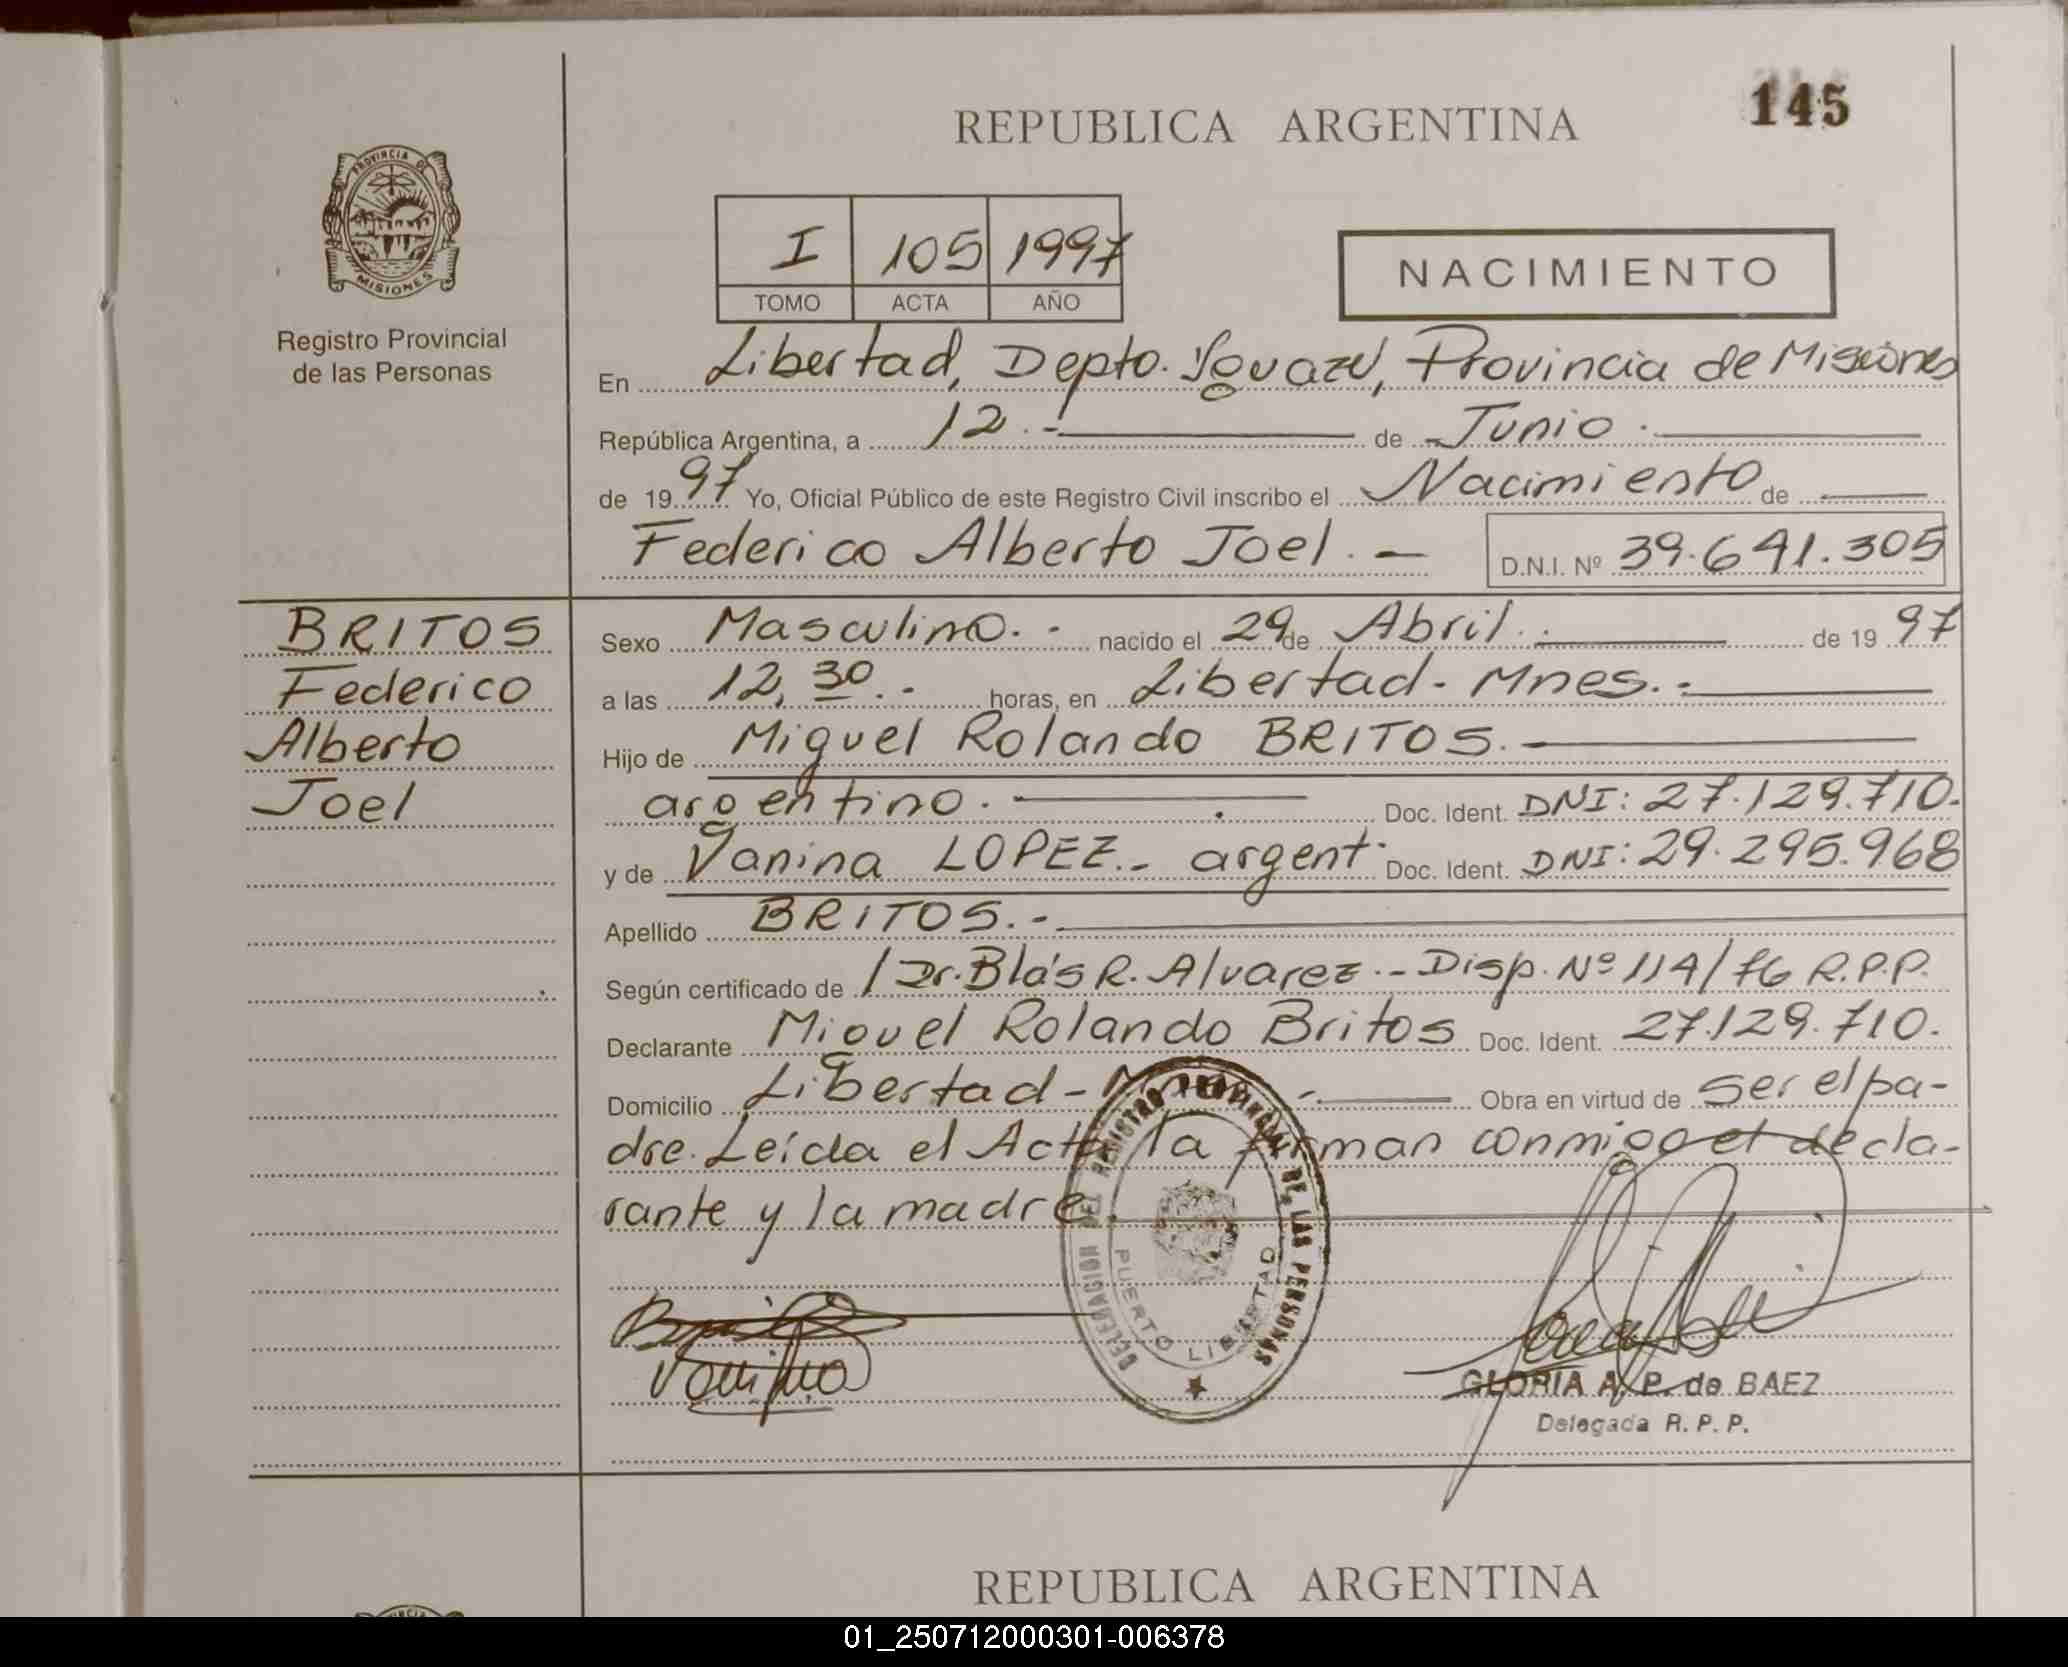 145
REPUBLICA ARGENTINA
PROVINCIA DE
MISIONES
Registro Provincial
de las Personas
I 105 1997
TOMO ACTA AÑO
NACIMIENTO
En Libertad, Depto. Iguazú, Provincia de Misiones
República Argentina, a 12.- de Junio.
de 1997 Yo, Oficial Público de este Registro Civil inscribo el Nacimiento de
Federico Alberto Joel.- D.N.I. Nº 39.641.305
BRITOS
Federico
Alberto
Joel
Sexo Masculino.- nacido el 29 de Abril.- de 1997
a las 12,30.- horas, en Libertad-Mnes.-
Hijo de Miguel Rolando BRITOS.-
argentino. Doc. Ident. DNI: 27.129.710.
y de Vanina LOPEZ.- argent. Doc. Ident. DNI: 29.295.968
Apellido BRITOS.-
Según certificado de / Dr. Blás R. Alvarez.- Disp. Nº 114/76 R.P.P.
Declarante Miguel Rolando Britos Doc. Ident. 27.129.710.
Domicilio Libertad- Obra en virtud de ser el pa-
dre. Leída el Acta la firman conmigo el decla-
rante y la madre.
DELEGACION DEL REGISTRO PROVINCIAL DE LAS PERSONAS
PUERTO LIBERTAD
GLORIA A. P. de BAEZ
Delegada R. P. P.
REPUBLICA ARGENTINA
01_250712000301-006378